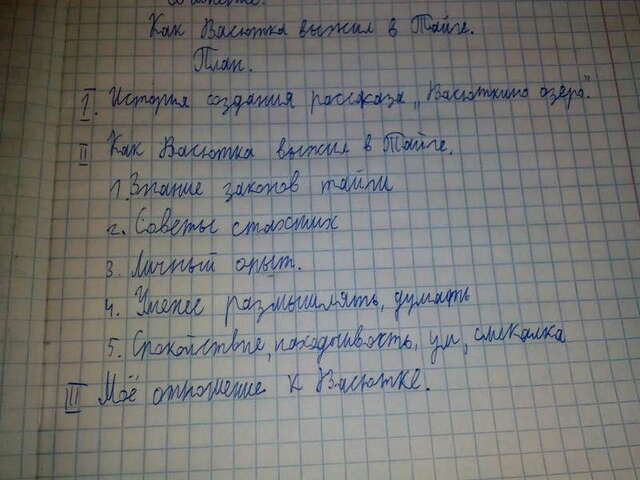 Как Васютка выжил в Тайге.
План.
I. История создания рассказа „Васюткино озеро".
II Как Васютка выжил в Тайге.
1. Знание законов тайги
2. Советы старших
3. Личный опыт.
4. Умение размышлять, думать
5. Спокойствие, находчивость, ум, смекалка
III Моё отношение к Васютке.